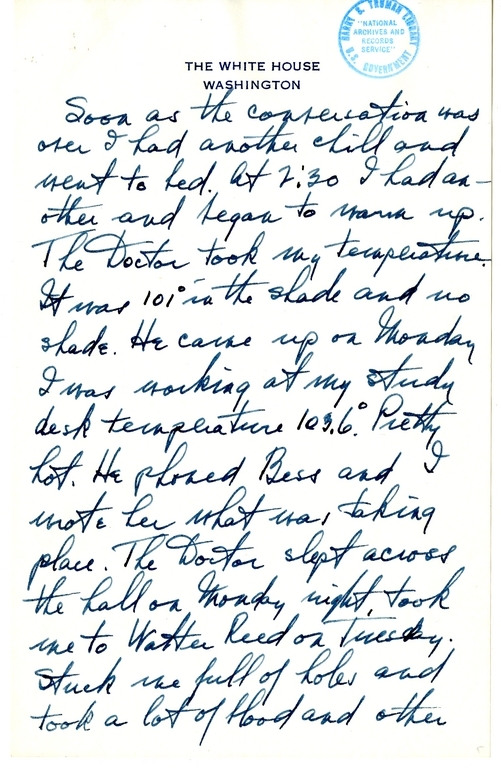 HARRY S. TRUMAN LIBRARY
"NATIONAL
ARCHIVES AND
RECORDS
SERVICE"
U.S. GOVERNMENT
THE WHITE HOUSE
WASHINGTON
Soon as the conversation was
over I had another chill and
went to bed. At 2:30 I had an-
other and began to warm up.
The Doctor took my temperature.
It was 101° in the shade and no
shade. He came up on Monday
I was working at my study
desk temperature 103.6°. Pretty
hot. He phoned Bess and I
wrote her what was taking
place. The Doctor slept across
the hall on Monday night, took
me to Walter Reed on Tuesday.
Stuck me full of holes and
took a lot of blood and other